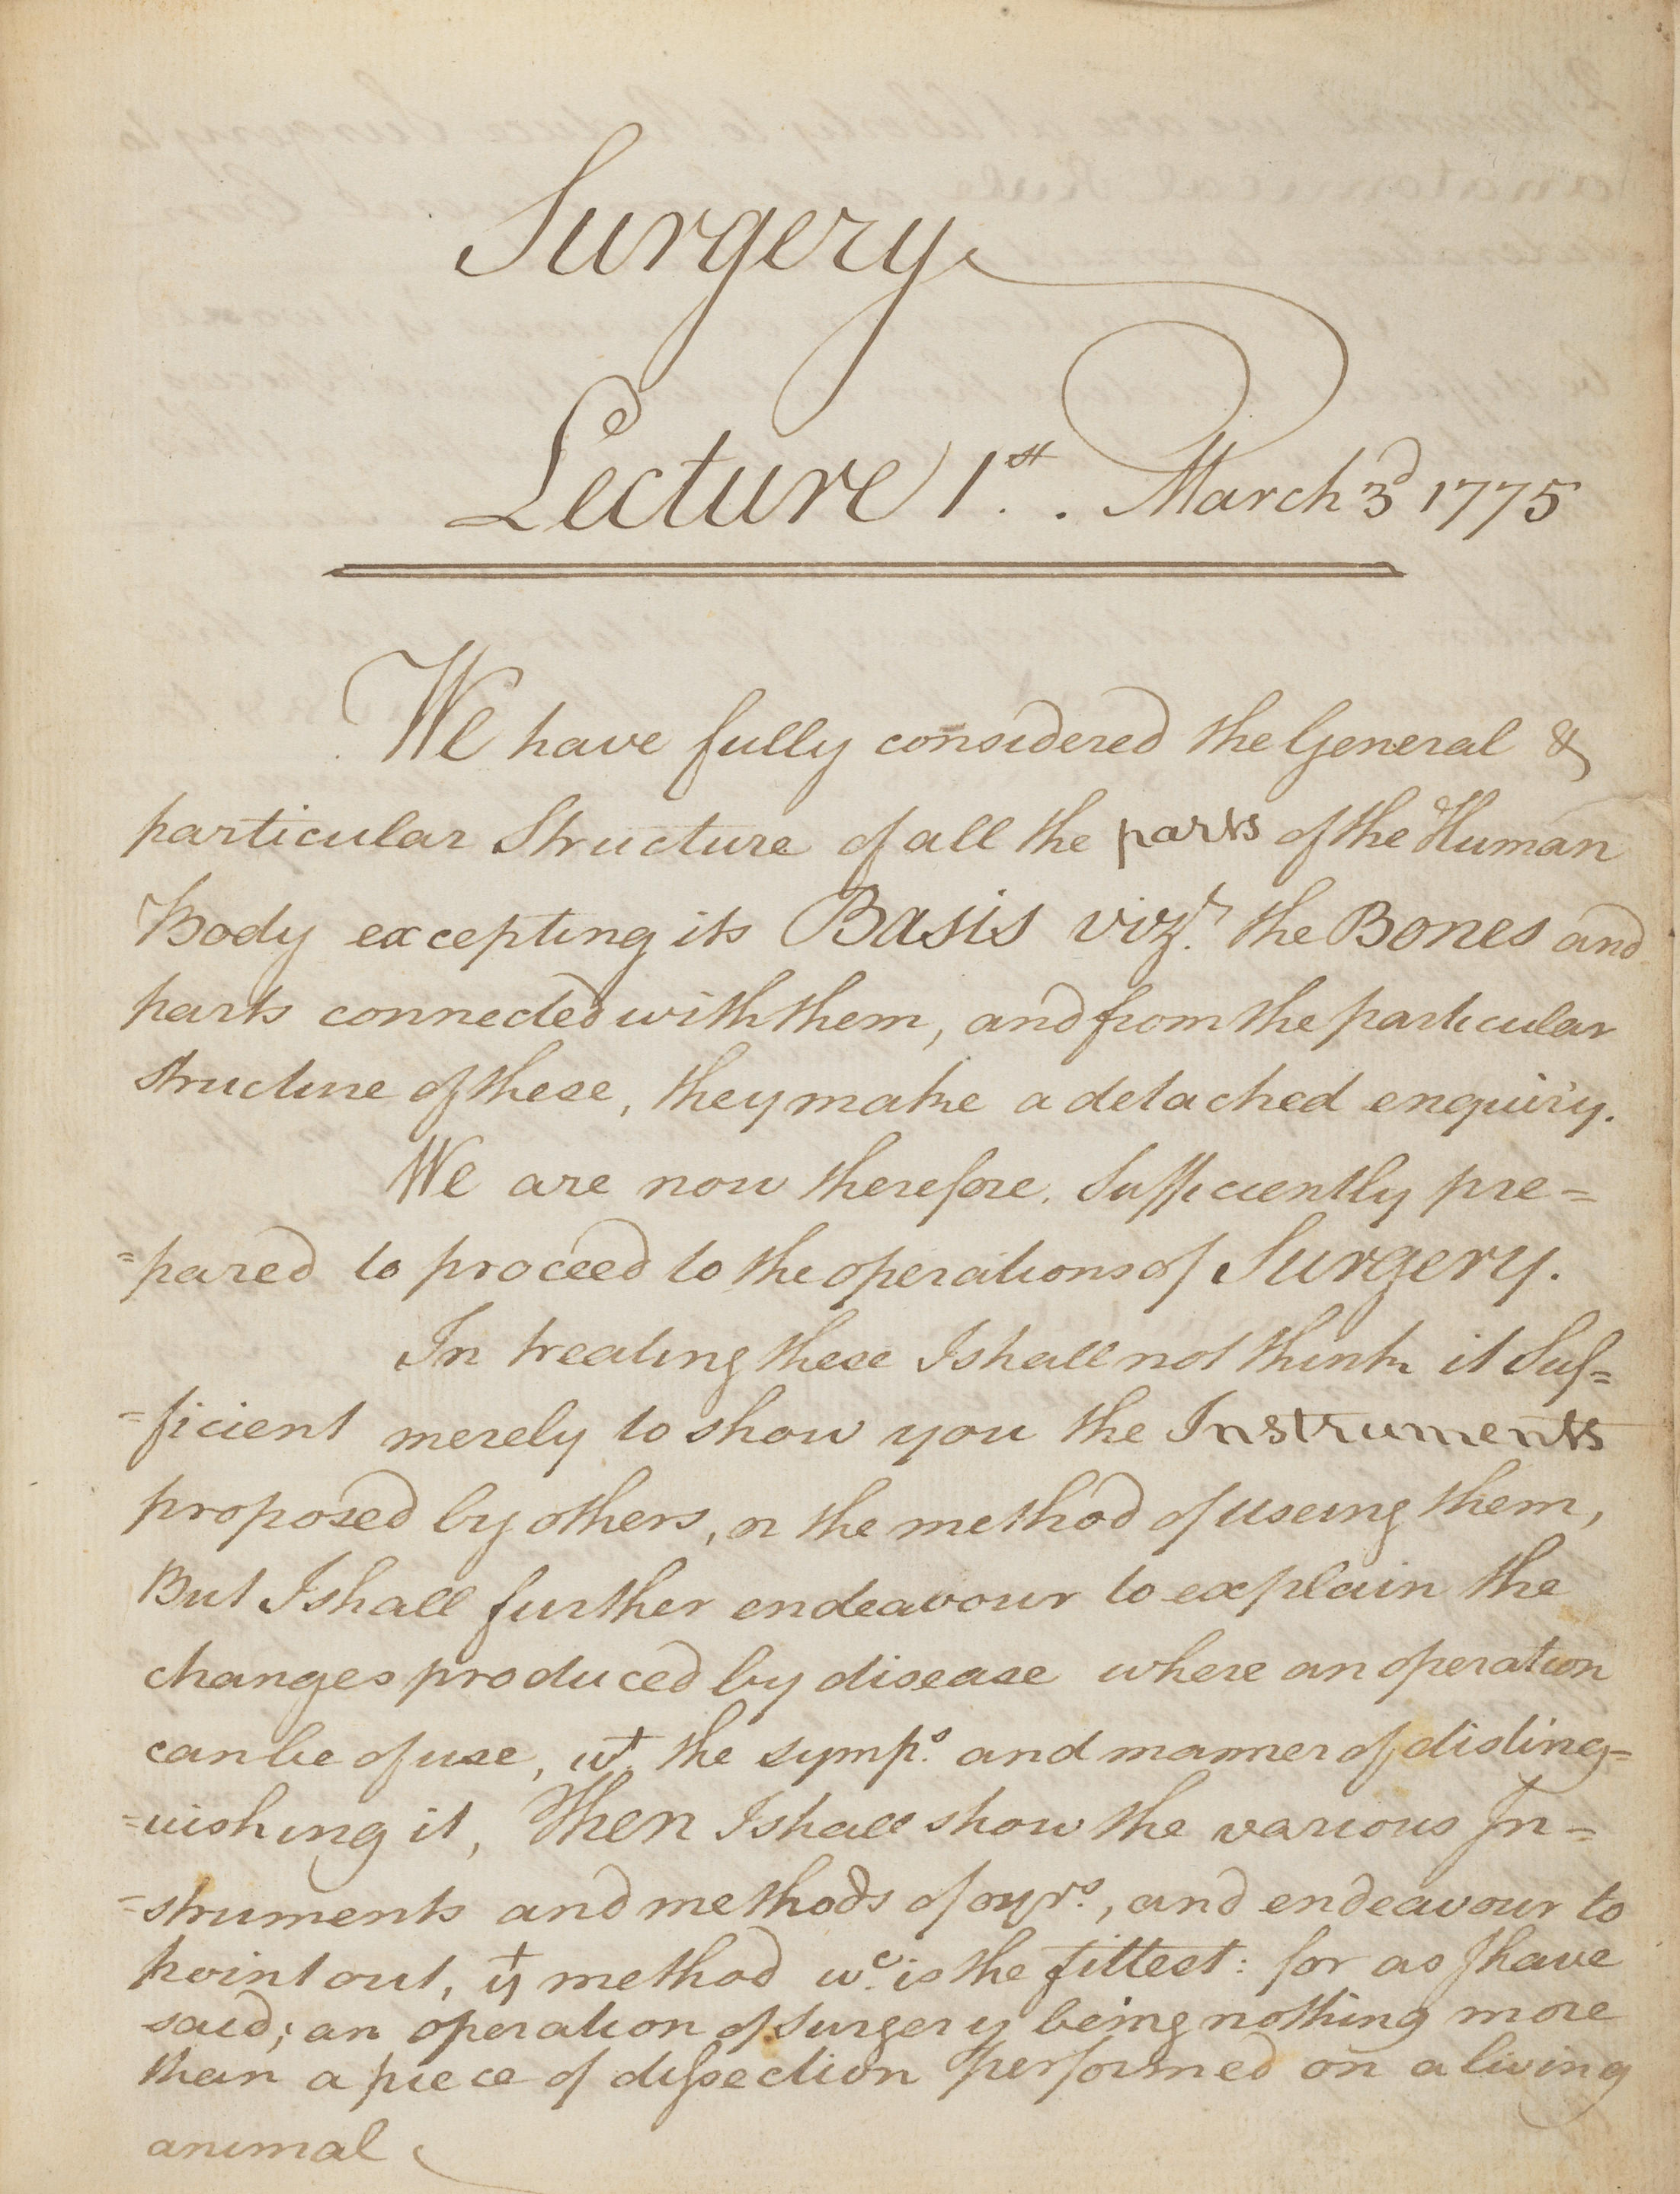 Surgery
Lecture 1st. . March 3d 1775
We have fully considered the General &
particular Structure of all the parts of the Human
Body excepting its Basis vizt. the Bones and
parts connected with them, and from the particular
structure of these, they make a detached enquiry.
We are now therefore. Sufficiently pre=
=pared to proceed to the operations of Surgery.
In treating these I shall not think it Suf=
=ficient merely to show you the Instruments
proposed by others, or the method of useing them,
But I shall further endeavour to explain the
changes produced by disease where an operation
can be of use, wt. the symps. and manner of disting=
=uishing it, Then I shall show the various In=
=struments and methods of oyrs., and endeavour to
point out, yt method wc. is the fittest: for as I have
said; an operation of surgery being nothing more
than a piece of dissection performed on a living
animal